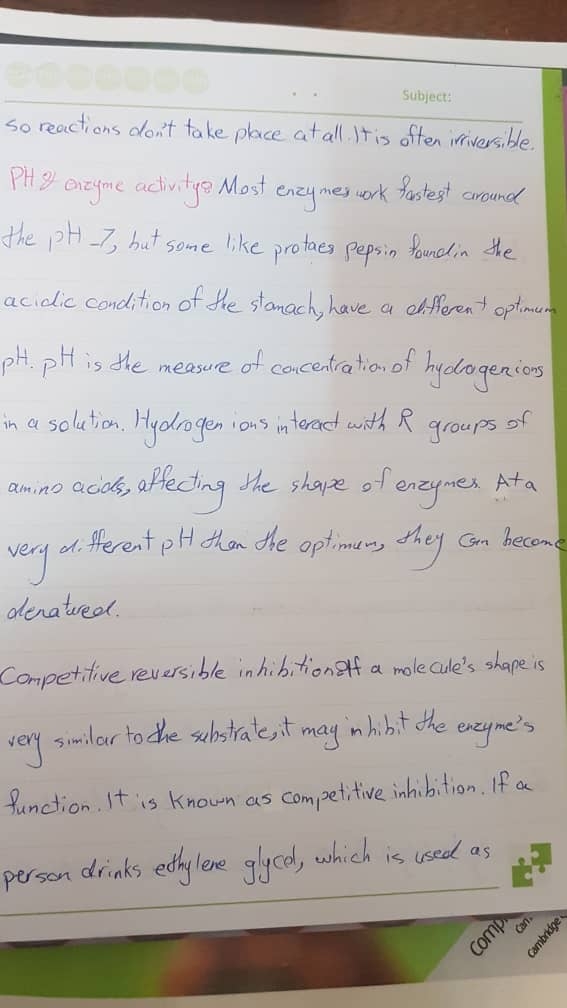 Subject:
so reactions don't take place at all. It is often irriversible.
PH & enzyme activity: Most enzymes work fastest around
the pH 7, but some like protaes pepsin found in the
acidic condition of the stomach, have a different optimum
pH. pH is the measure of concentration of hydrogen ions
in a solution. Hydrogen ions interact with R groups of
amino acids, affecting the shape of enzymes. At a
very different pH than the optimum, they can become
denatured.
Competitive reversible inhibition: If a molecule's shape is
very similar to the substrate, it may inhibit the enzyme's
function. It is known as competitive inhibition. If a
person drinks ethylene glycol, which is used as
Comp
Can
Cambridge